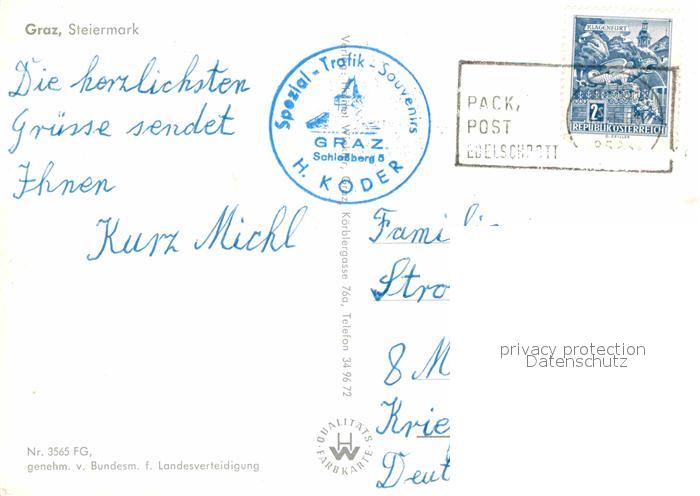 Graz, Steiermark
Die herzlichsten
Grüsse sendet
Ihnen
Kurz Michl
Nr. 3565 FG,
genehm. v. Bundesm. f. Landesverteidigung
Spezial - Trafik - Souvenirs
GRAZ
Schloßberg 5
H. KODER
Graz, Körblergasse 76a, Telefon 34 96 72
QUALITÄTS
FARBKARTE
HW
PACK,
POST
EDELSCHROTT
KLAGENFURT
2S
REPUBLIK ÖSTERREICH
Fami
Stro
8 M
Krie
Deut
privacy protection
Datenschutz